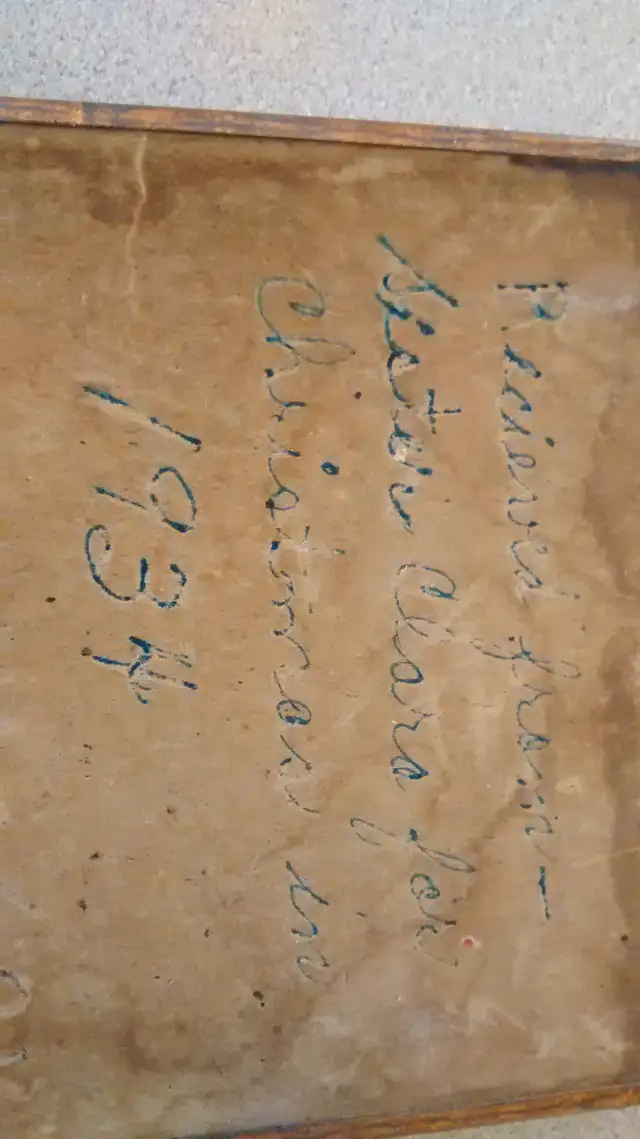 Recieved from -
Sister Clara for
Christmas in
1934